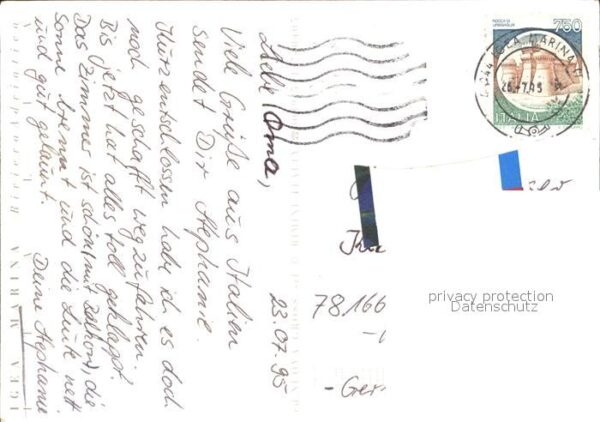 Liebe Oma,
23.07.95
Viele Grüße aus Italien
sendet Dir Stephanie.
Kurzentschlossen habe ich es doch
noch geschafft wegzufahren.
Bis jetzt hat alles toll geklappt.
Das Zimmer ist schön (mit Balkon), die
Sonne brennt und die Leute nett
und gut gelaunt.
Deine Stephanie
IGEA MARINA
750
ITALIA
IGEA MARINA
78166
-Ger
privacy protection
Datenschutz